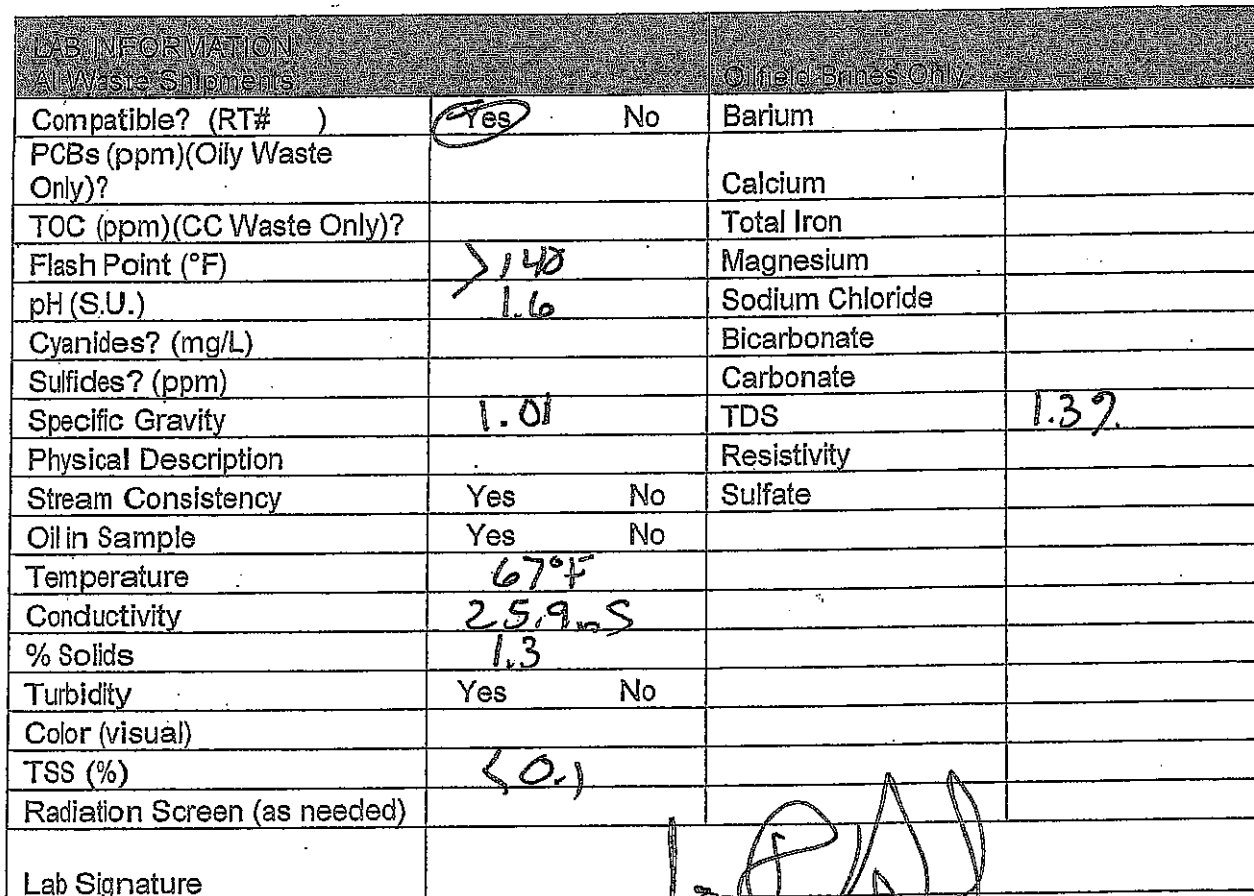 LAB INFORMATION
All Waste Shipments Oilfield Brines Only
Compatible? (RT# ) Yes No Barium
PCBs (ppm)(Oily Waste
Only)? Calcium
TOC (ppm)(CC Waste Only)? Total Iron
Flash Point (°F) >140 Magnesium
pH (S.U.) 1.6 Sodium Chloride
Cyanides? (mg/L) Bicarbonate
Sulfides? (ppm) Carbonate
Specific Gravity 1.01 TDS 1.3%
Physical Description Resistivity
Stream Consistency Yes No Sulfate
Oil in Sample Yes No
Temperature 67°F
Conductivity 25.9mS
% Solids 1.3
Turbidity Yes No
Color (visual)
TSS (%) <0.1
Radiation Screen (as needed)
Lab Signature